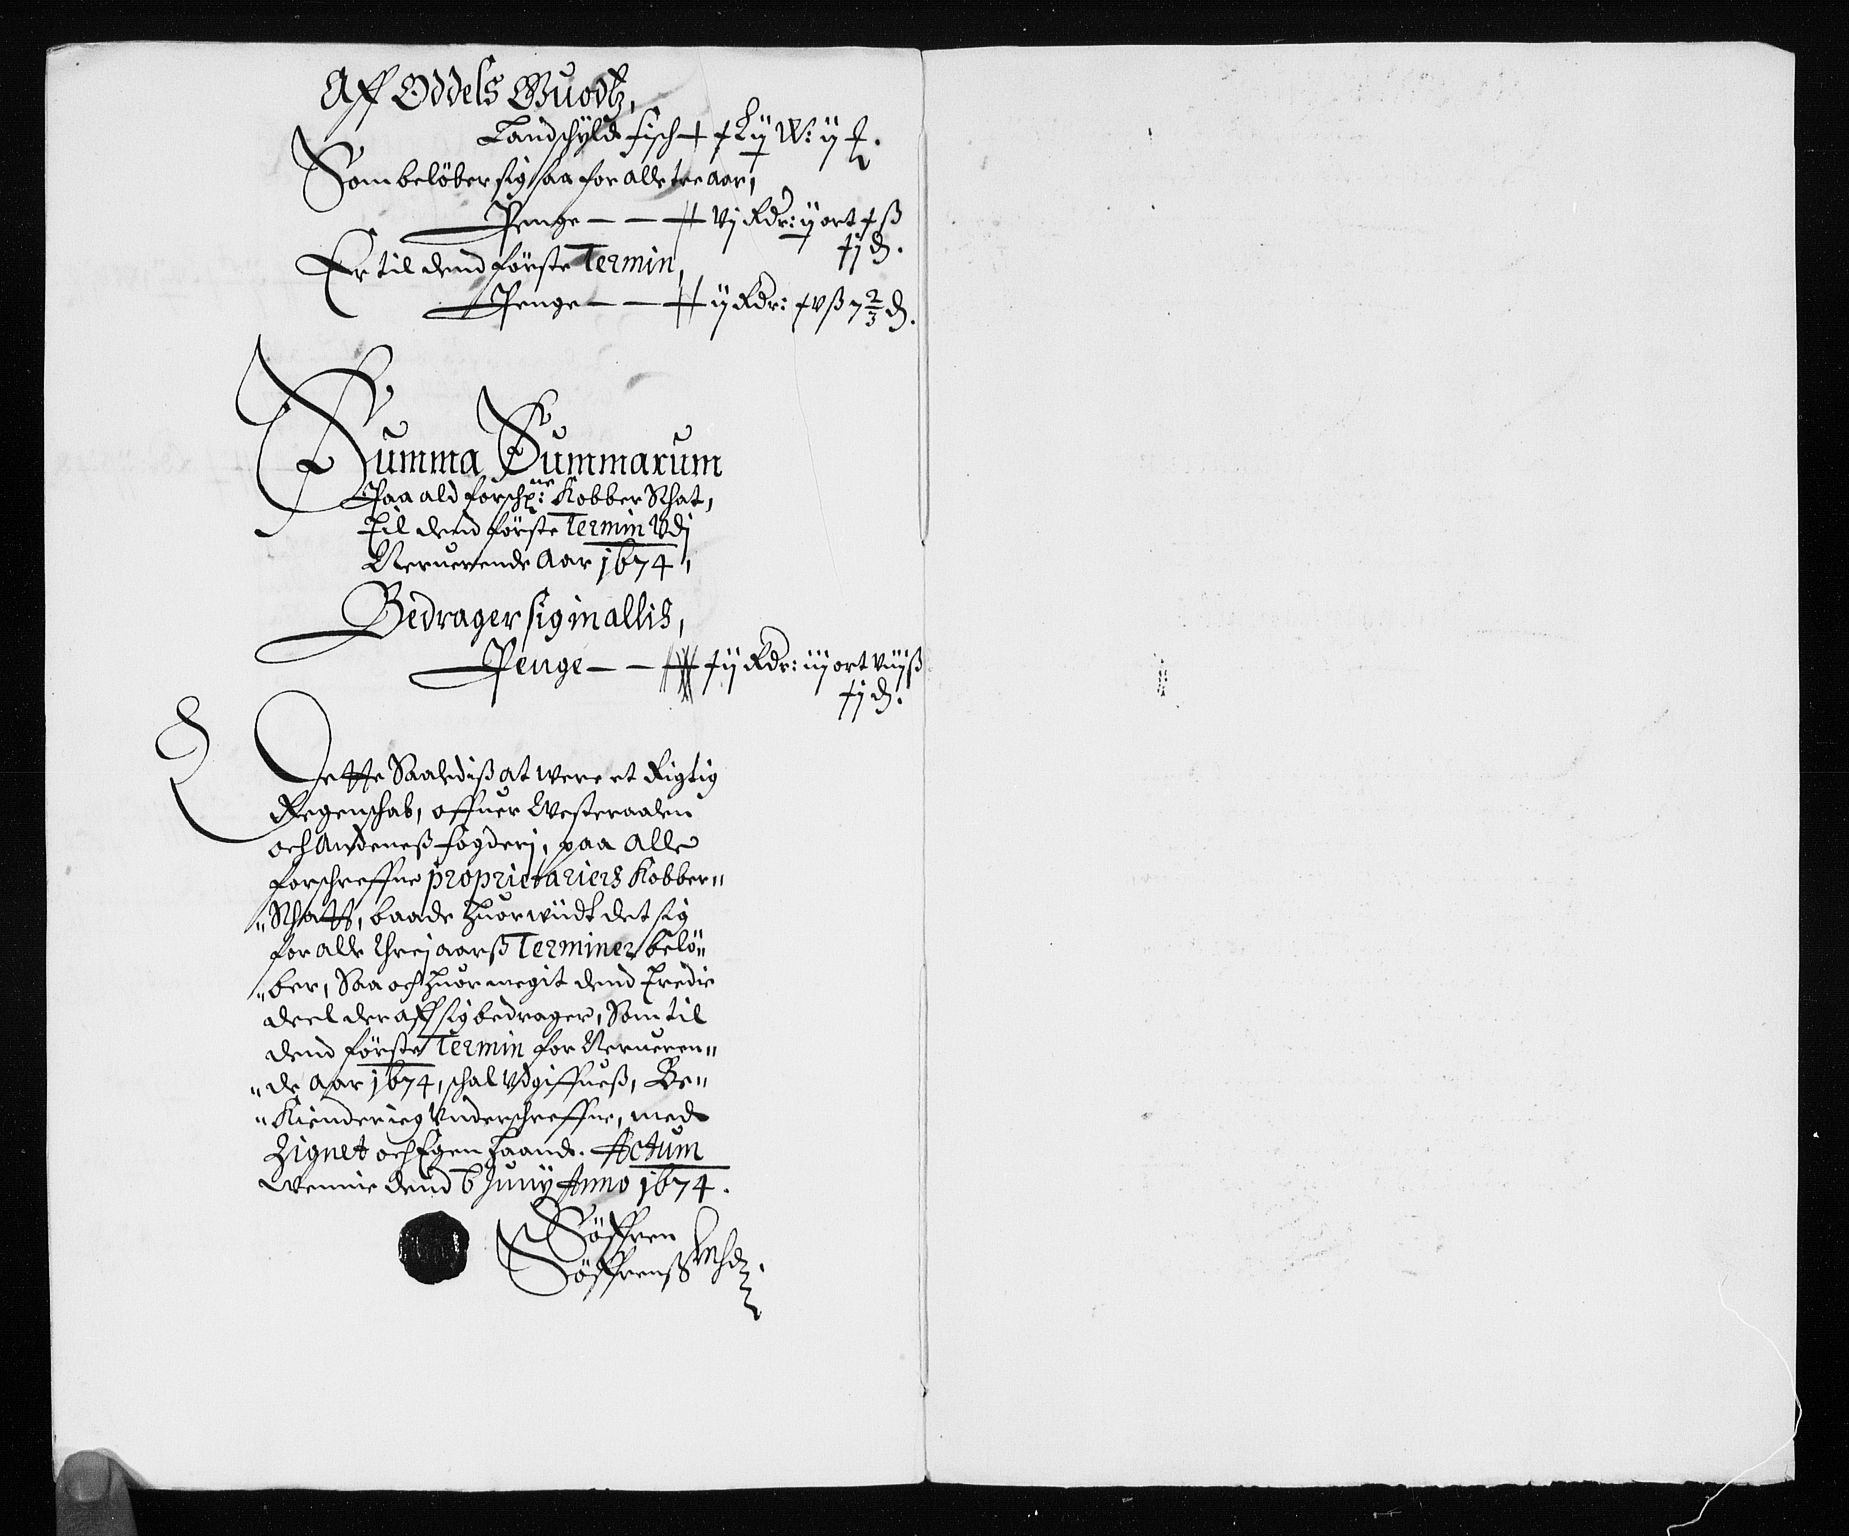 Aff Oddels Guodtz,
Landschyld fisch
Som beløber sig saa for alle tre aar,
Penge — — vj Rdr: ij ort + ß
+j d.
Er til dend første Termin,
Penge — — ij Rdr: +v ß 7 2/3 d.
Summa Summarum
Paa ald forschr:ne Kobber Schat,
Til dend første Termin Vdj
Neruerende Aar 1674,
Bedrager sig in allis,
Penge — — +ij Rdr: iij ort viij ß
+j d.
Dette Saalediß at were et Rigtig
Regenschab, offuer Westeraalen
och Andeneß fogderj, paa Alle
forschreffne proprietariers Kobber„
„Schatt, baade huor wiidt det sig
for alle threj aarß Terminer belø„
„ber, Saa och huor megit dend Tredie
deel der aff sig bedrager, Som til
dend første Termin for Nerueren„
„de Aar 1674, schal Vdgiffueß, Be„
„Kiender ieg Vnderschreffne, med
Zignet och Egen Haand. Actum
dend 6 Junij Anno 1674.
Søffren
Søffrenß